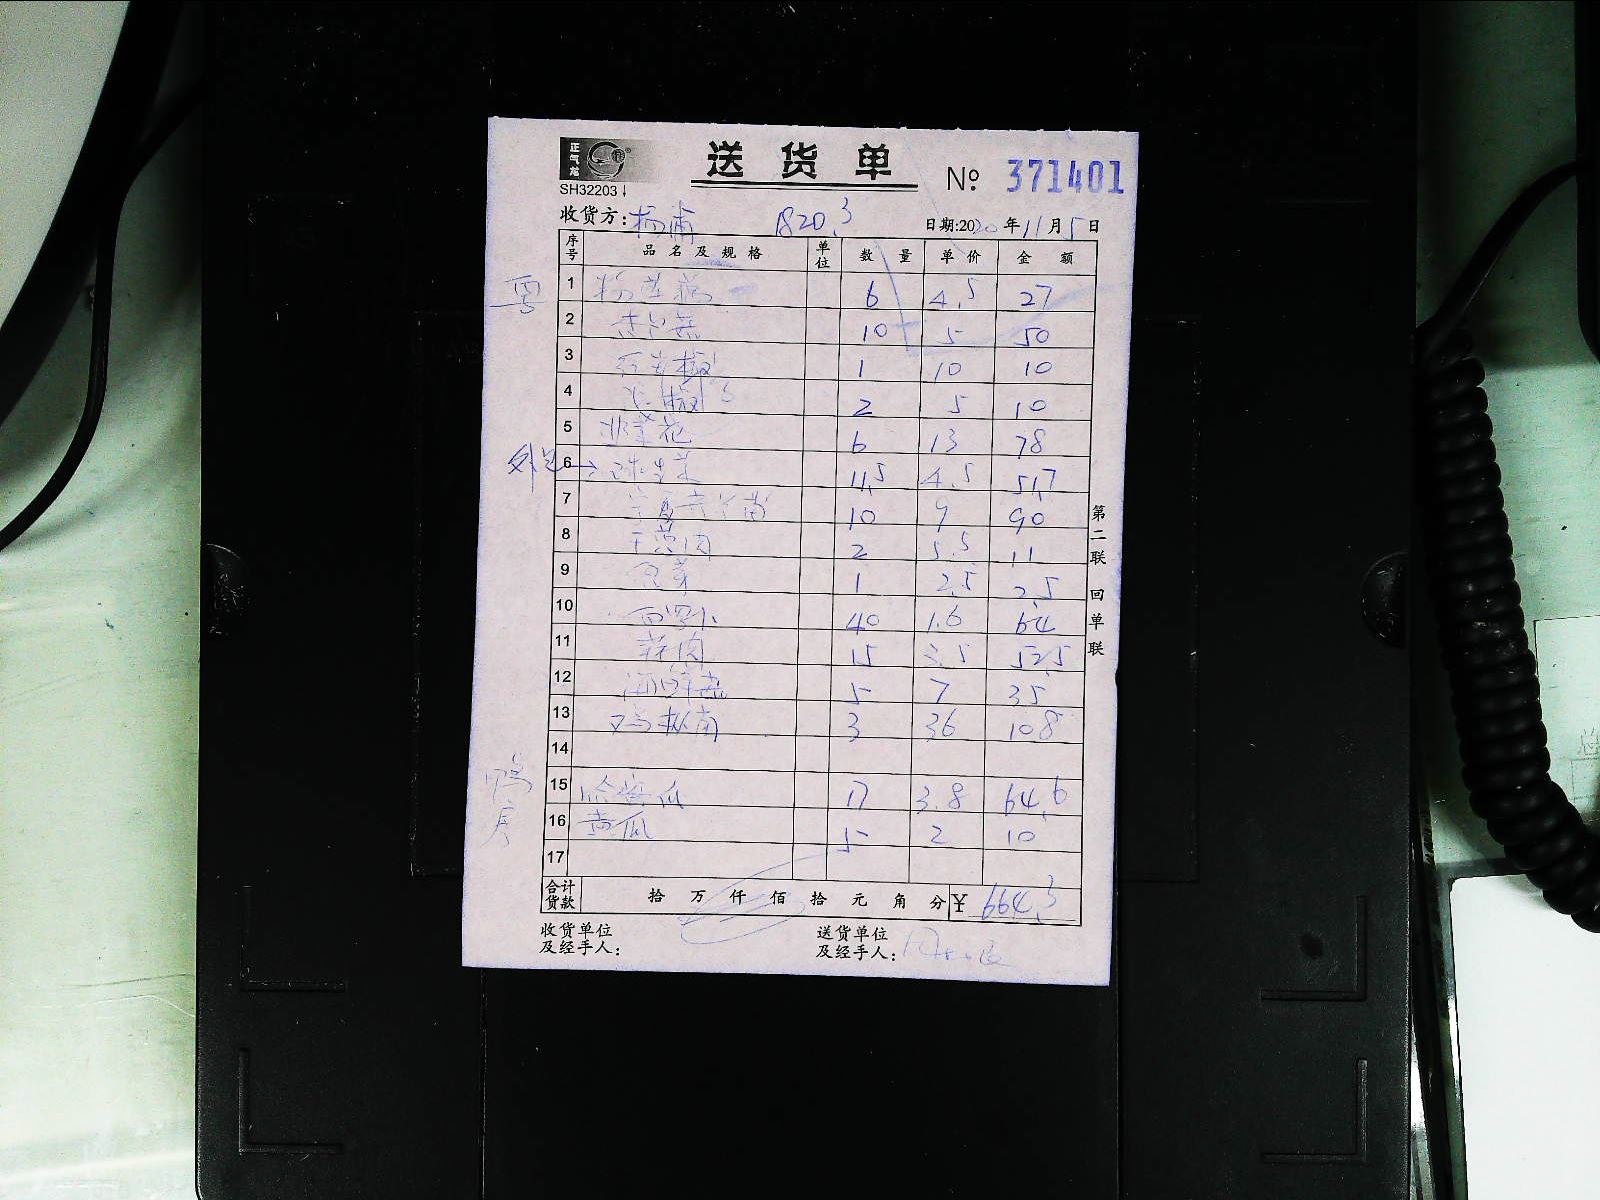 正气龙
送货单
№ 371401
SH32203
收货方：杨浦 1820.3 日期:2020年11月5日
序号 品名及规格 单位 数量 单价 金额
粤
1 粉莲藕 6 4.5 27
2 10 5 50
3 红尖椒 1 10 10
4 2 5 10
5 韭菜花 6 13 78
6 球生菜 11.5 4.5 51.7
7 10 9 90
8 干葱肉 2 5.5 11
9 1 2.5 2.5
10 40 1.6 64
11 蒜肉 15 3.5 52.5
12 海鲜菇 5 7 35
13 鸡枞菌 3 36 108
14
鸭房
15 哈密瓜 17 3.8 64.6
16 黄瓜 5 2 10
17
合计货款 拾 万 仟 佰 拾 元 角 分 ¥ 664.3
收货单位
及经手人：
送货单位
及经手人：
第二联 回单联